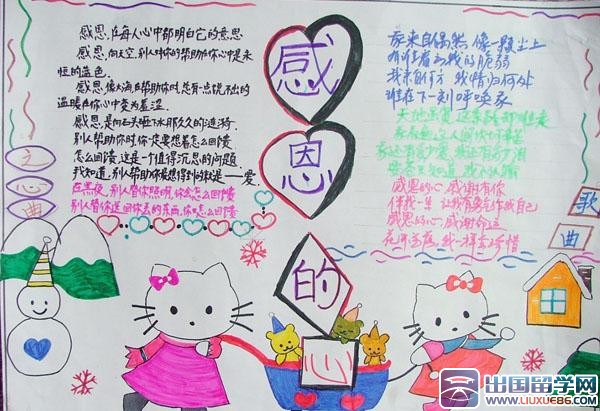 感恩的心
心曲
感恩,在每人心中都明白它的意思
感恩,向天空,别人对你的帮助在你心中是永
恒的蓝色.
感恩,像大海,在帮助你时,总有一点说不出的
温暖在你心中变为羞涩.
感恩,是向石头啦下水那久久的涟漪.
别人帮助你时,你一定要想着怎么回馈
怎么回馈,这是个值得沉思的问题.
我知道,别人帮助你最想得到的就是——爱.
在黑夜,别人替你照明,你会怎么回馈
别人替你送回你丢的东西,你怎么回馈
我来自偶然 像一颗尘土
有谁看出我的脆弱
我来自何方 我情归何处
谁在下一刻呼唤我
天地虽宽 这条路却难走
感恩的心 感谢有你
伴我一生 让我有勇气作我自己
感恩的心 感谢命运
花开花落 我一样会珍惜
歌曲
出国留学网
www.liuxue86.com